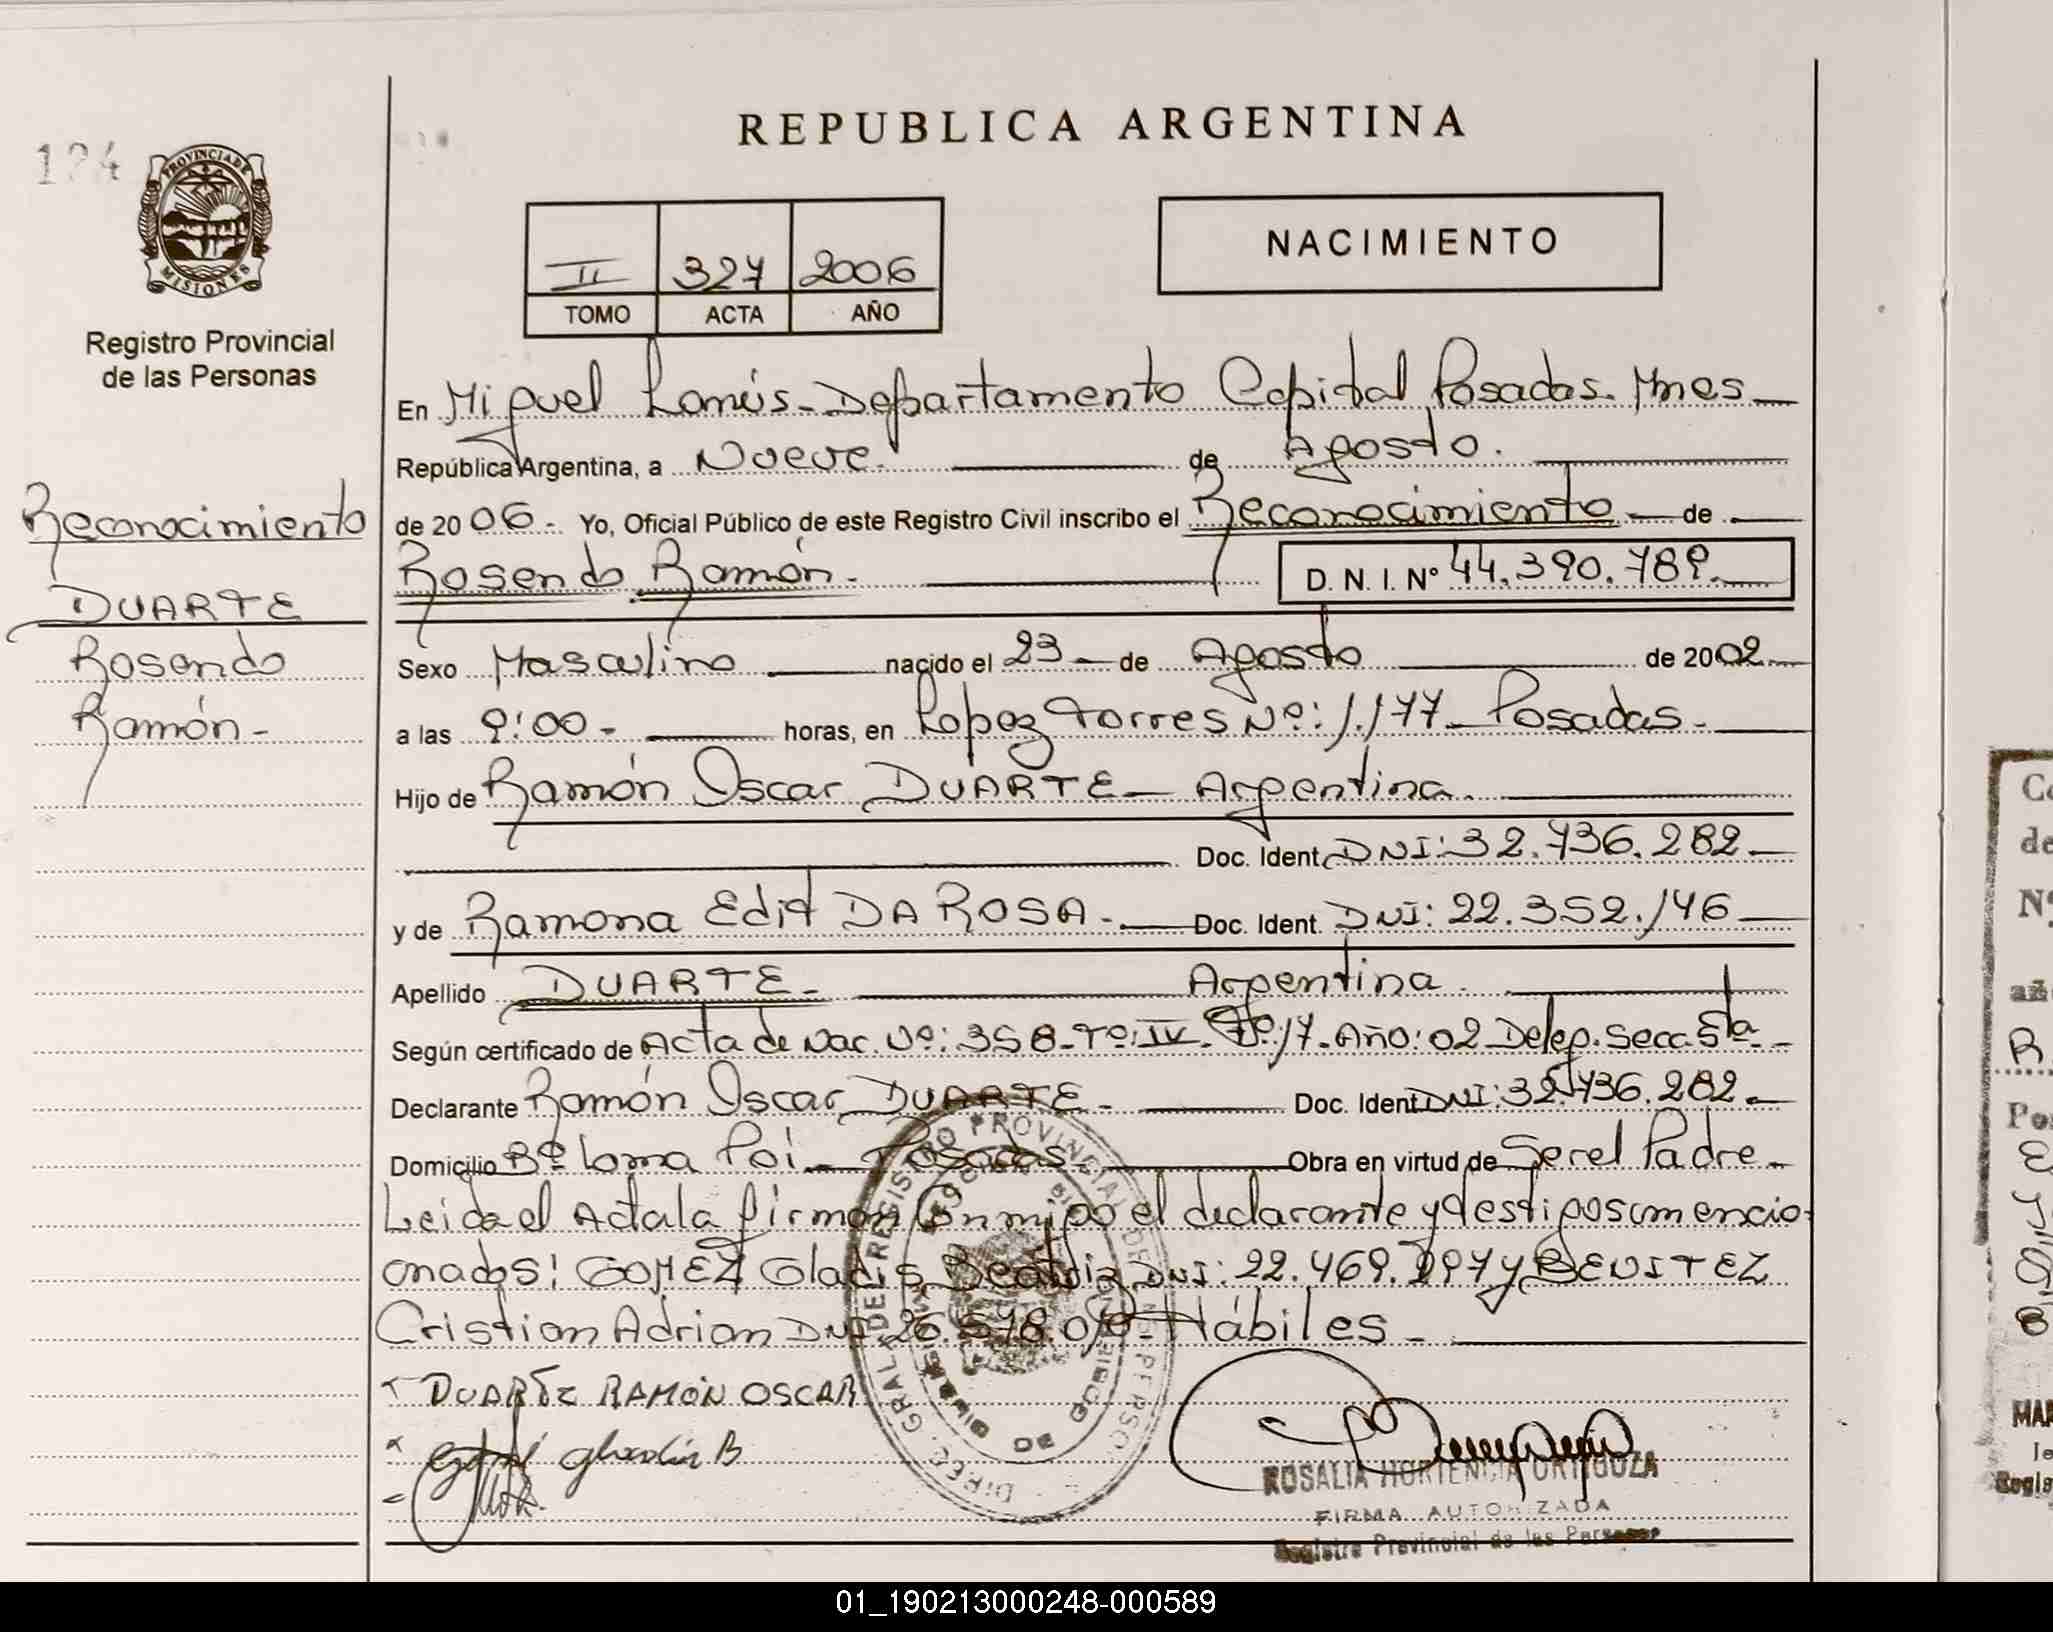 REPUBLICA ARGENTINA
124
PROVINCIA DE
MISIONES
Registro Provincial
de las Personas
II 327 2006
TOMO ACTA AÑO
NACIMIENTO
En Miguel Lanús - Departamento Capital Posadas. Mnes
República Argentina, a Nueve. de Agosto.
de 2006.- Yo, Oficial Público de este Registro Civil inscribo el Reconocimiento de
Rosendo Ramón. D. N. I. Nº 44.390.789.
Reconocimiento
DUARTE
Rosendo
Ramón-
Sexo Masculino nacido el 23 de Agosto de 2002
a las 9:00 - horas, en Lopez Torres Nº: 1.177 - Posadas.
Hijo de Ramón Oscar DUARTE - Argentina.
Doc. Ident. DNI: 32.736.282
y de Ramona Edit DA ROSA. Doc. Ident. DNI: 22.352.146
Apellido DUARTE. Argentina.
Según certificado de Acta de Nac. Nº: 358-Tº: IV. Fº: 17. Año: 02 Deleg. Secc. 5ta
Declarante Ramón Oscar DUARTE. Doc. Ident. DNI: 32.736.282
Domicilio Bº Loma Poi - Posadas. Obra en virtud de Ser el Padre
Leida el Acta la firman Con migo el declarante y testigos a mencio
onados: GOMEZ Gladis Beatriz DNI: 22.469. y BENITEZ
Cristian Adrian DNI Hábiles
DUARTE RAMÓN OSCAR
B
DIREC. GRAL. DE REGISTRO PROVINCIAL DE
ROSALIA HORTENCIA ORTIGOZA
FIRMA AUTORIZADA
Registro Provincial de las Personas
Nº
R
MAR
Regis
01_190213000248-000589